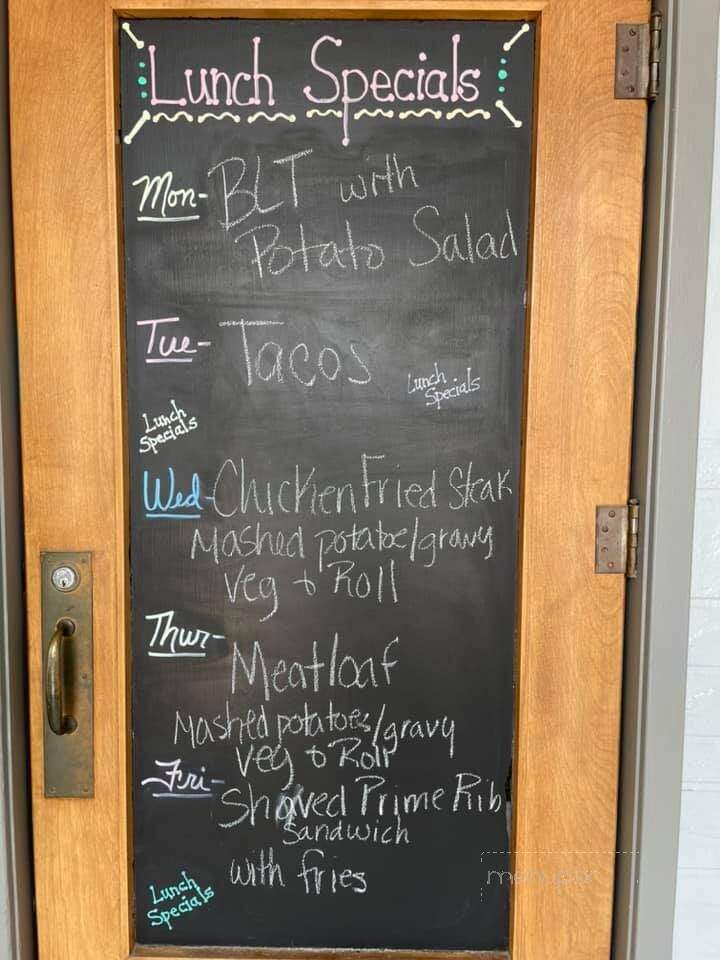 Lunch Specials
Mon- BLT with
Potato Salad
Tue- Tacos
Lunch
Specials
Lunch
Specials
Wed- Chicken Fried Steak
Mashed potatoe/gravy
Veg & Roll
Thur-
Meatloaf
Mashed potatoes/gravy
Veg & Roll
Fri-
Shaved Prime Rib
Sandwich
with fries
Lunch
Specials